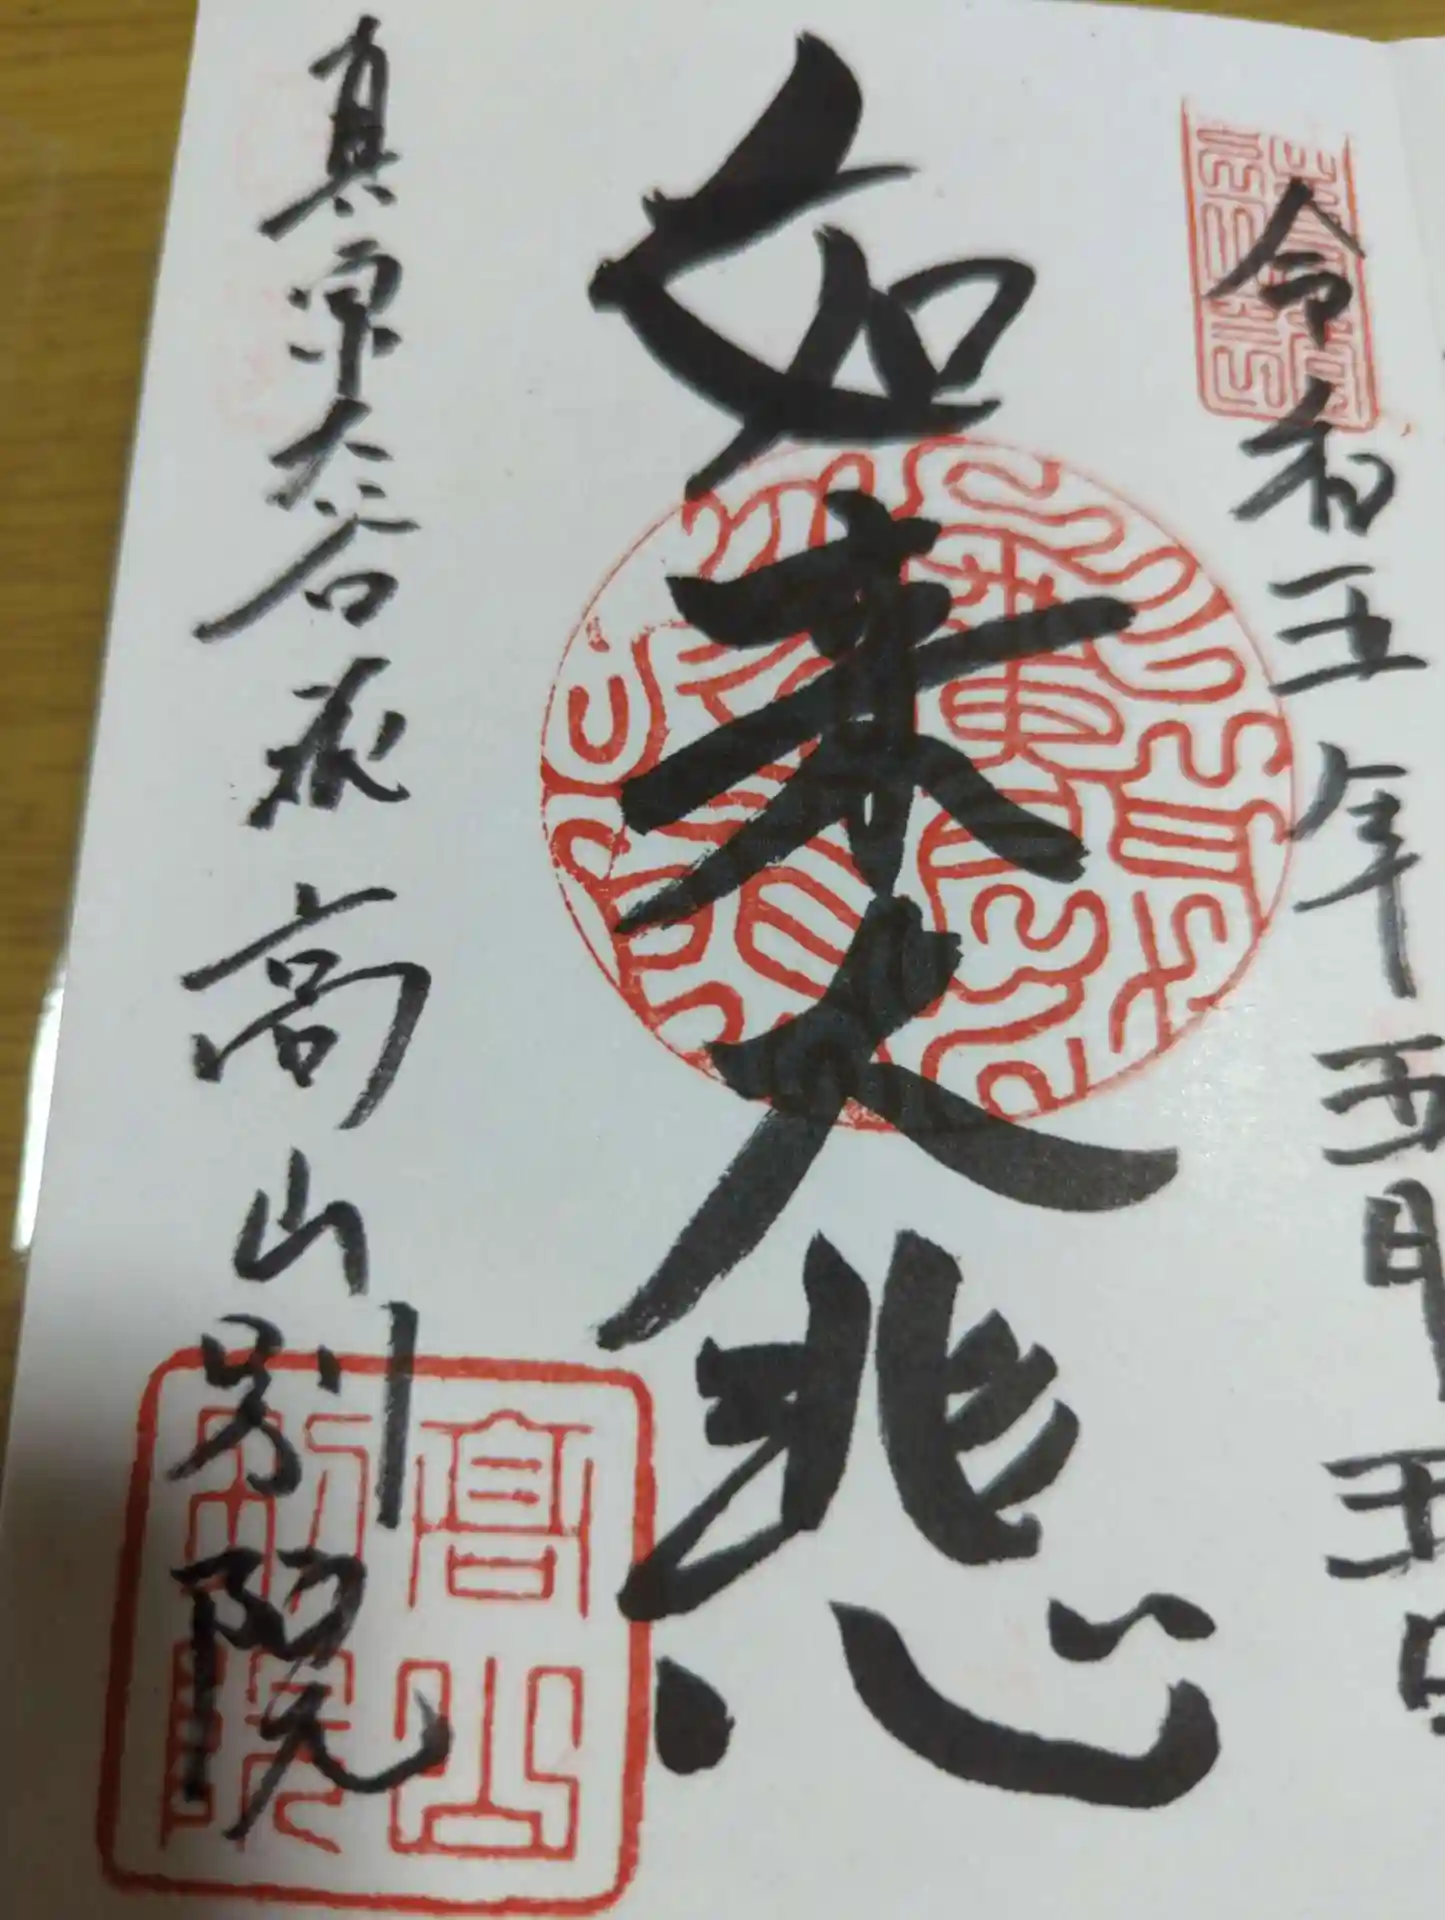 令和五年五月五日
如来大悲
真宗大谷派 高山別院
高山
別院